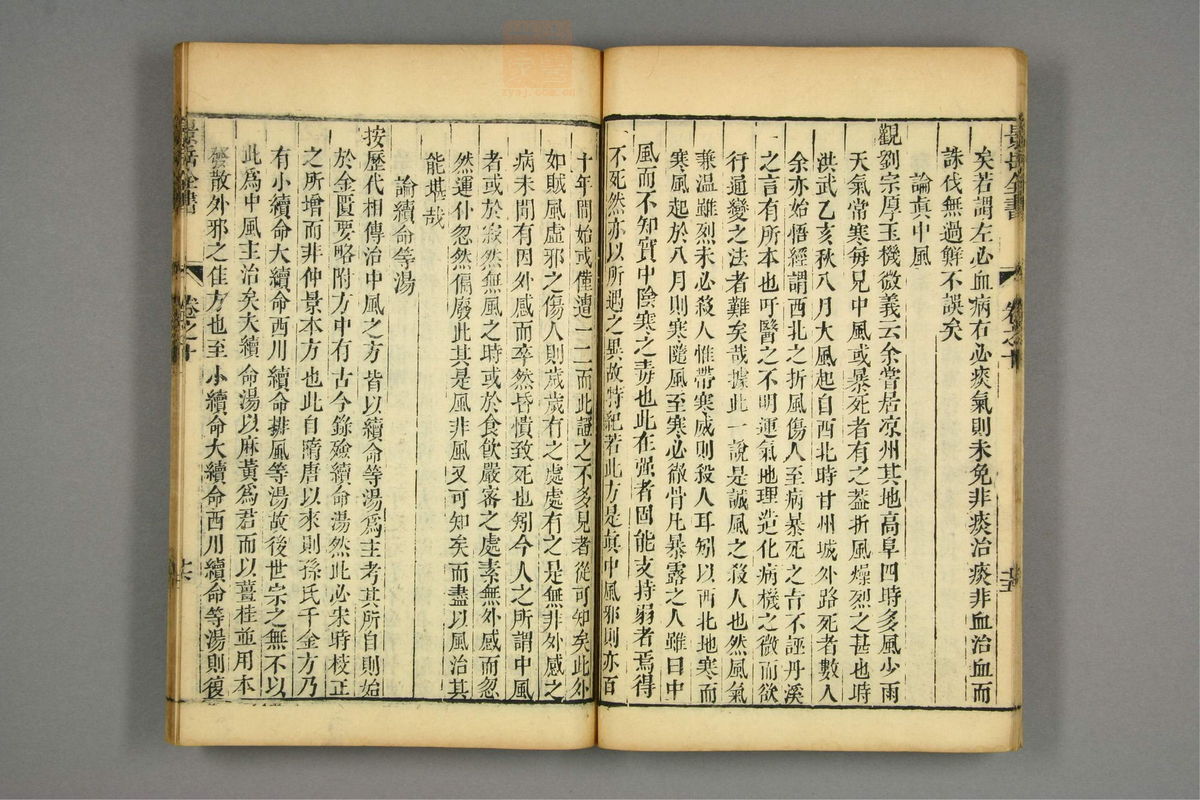 矣若謂左必血病右必痰氣則未免非痰治痰非血治血而
誅伐無過鮮不誤矣
論眞中風
觀劉宗厚玉機微義云余嘗居凉州其地高阜四時多風少雨
天氣常寒每見中風或暴死者有之葢折風燥烈之甚也時
洪武乙亥秋八月大風起自西北時甘州城外路死者數人
余亦始悟經謂西北之折風傷人至病暴死之旨不誣丹溪
之言有所本也吁醫之不明運氣地理造化病機之微而欲
行通變之法者難矣哉據此一說是誠風之殺人也然風氣
兼温雖烈未必殺人惟帶寒威則殺人耳矧以西北地寒而
寒風起於八月則寒隨風至寒必徹骨凡暴露之人雖曰中
風而不知實中陰寒之毒也此在强者固能支持弱者焉得
不死然亦以所遇之異故特紀若此方是眞中風邪則亦百
十年間始或僅遭一二而此證之不多見者從可知矣此外
如賊風虚邪之傷人則歲歲有之處處有之是無非外感之
病未聞有因外感而卒然昏憒致死也矧今人之所謂中風
者或於寂然無風之時或於食飲嚴審之處素無外感而忽
然運仆忽然偏廢此其是風非風又可知矣而盡以風治其
能堪哉
論續命等湯
按歷代相傳治中風之方皆以續命等湯爲主考其所自則始
於金匱要略附方中有古今錄驗續命湯然此必宋時校正
之所增而非仲景本方也此自隋唐以來則孫氏千金方乃
有小續命大續命西川續命排風等湯故後世宗之無不以
此爲中風主治矣夫續命湯以麻黃爲君而以薑桂並用本
發散外邪之佳方也至小續命大續命西川續命等湯則復
景岳全書
卷之十
景岳全書
卷之十